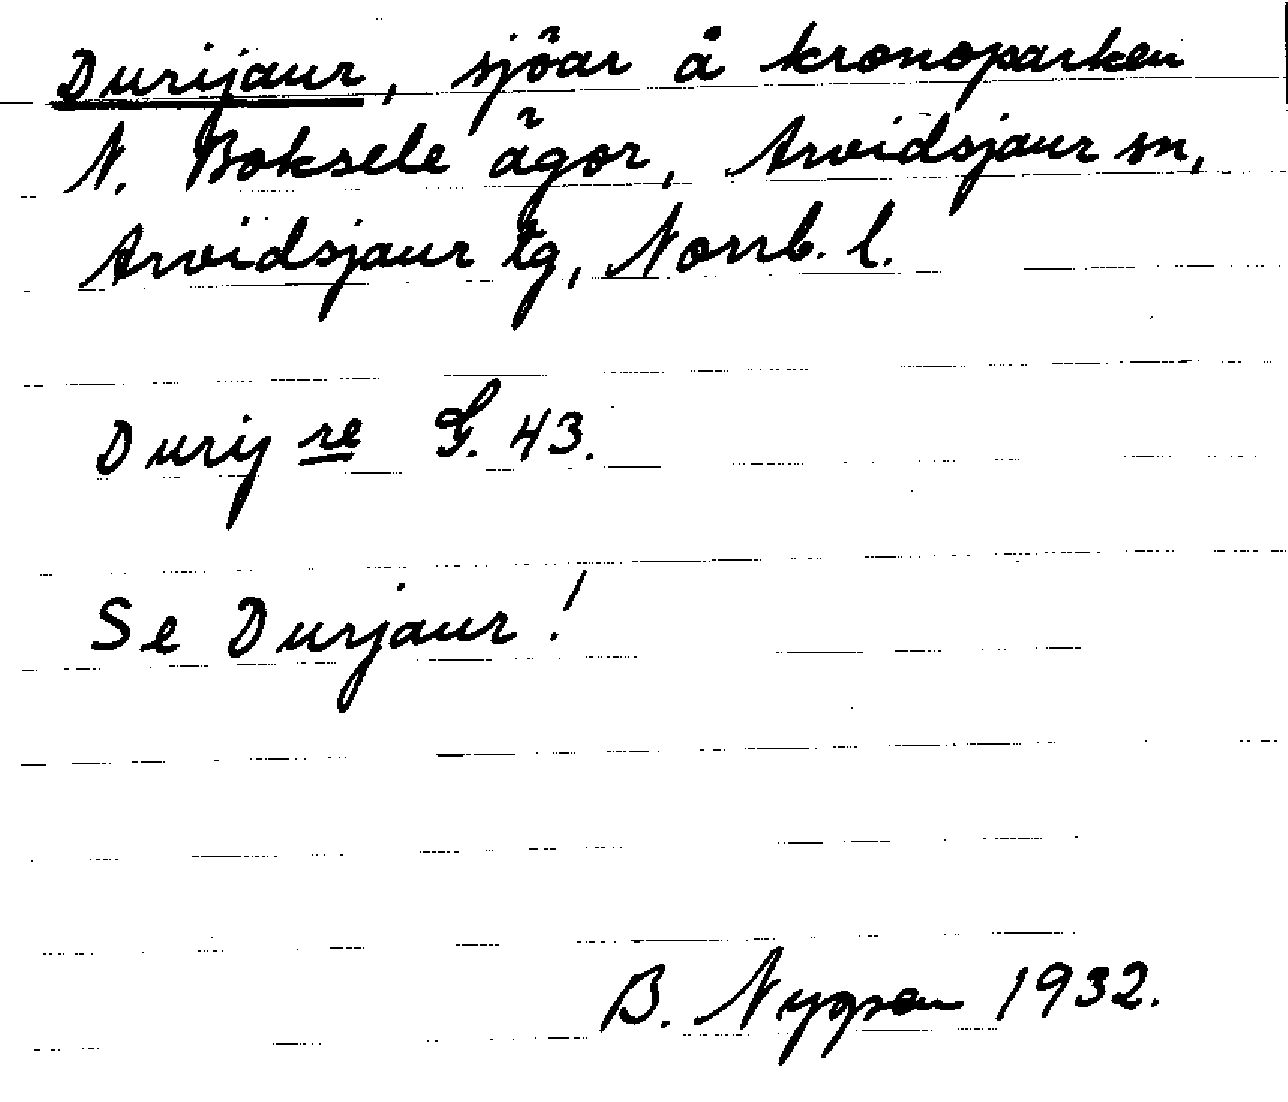 Durijaur, sjöar å kronoparken
N. Boksele ägor, Arvidsjaur sn,
Arvidsjaur tg, Norrb. l.
Durij re G. 43.
Se Durjaur!
B. 1932.